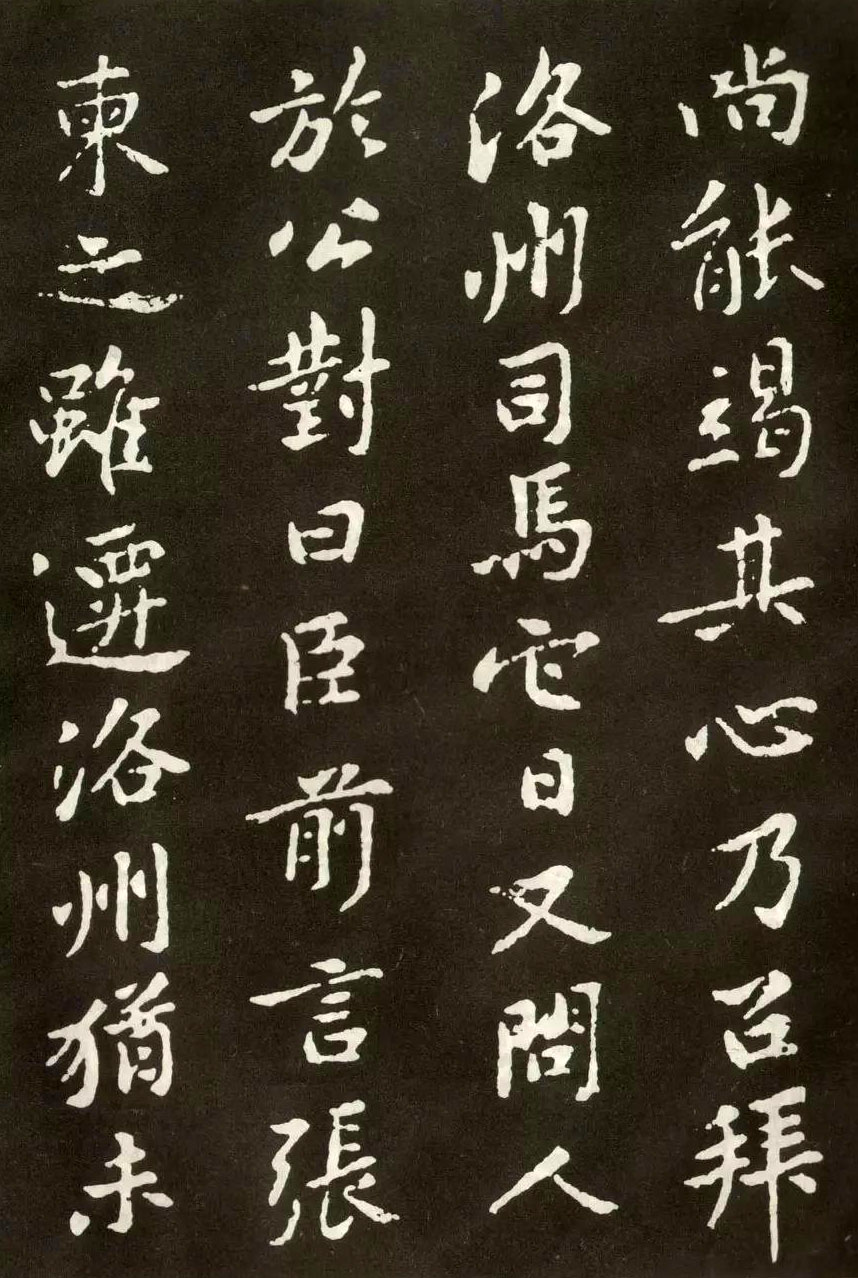 尚能竭其心乃召拜
洛州司馬它日又問人
於公對曰臣前言張
柬之雖遷洛州猶未